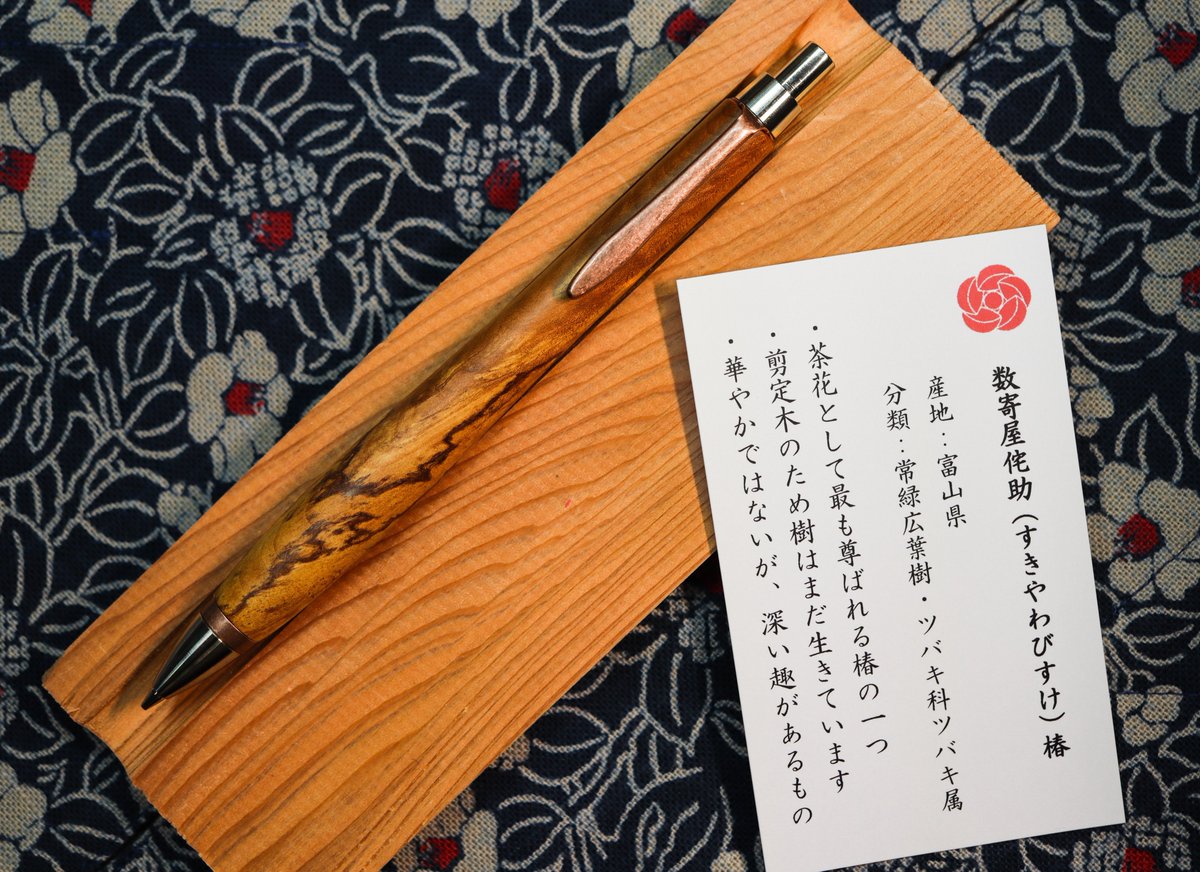 数寄屋侘助(すきやわびすけ)椿
産地：富山県
分類：常緑広葉樹・ツバキ科ツバキ属
・茶花として最も尊ばれる椿の一つ
・剪定木のため樹はまだ生きています
・華やかではないが、深い趣があるもの